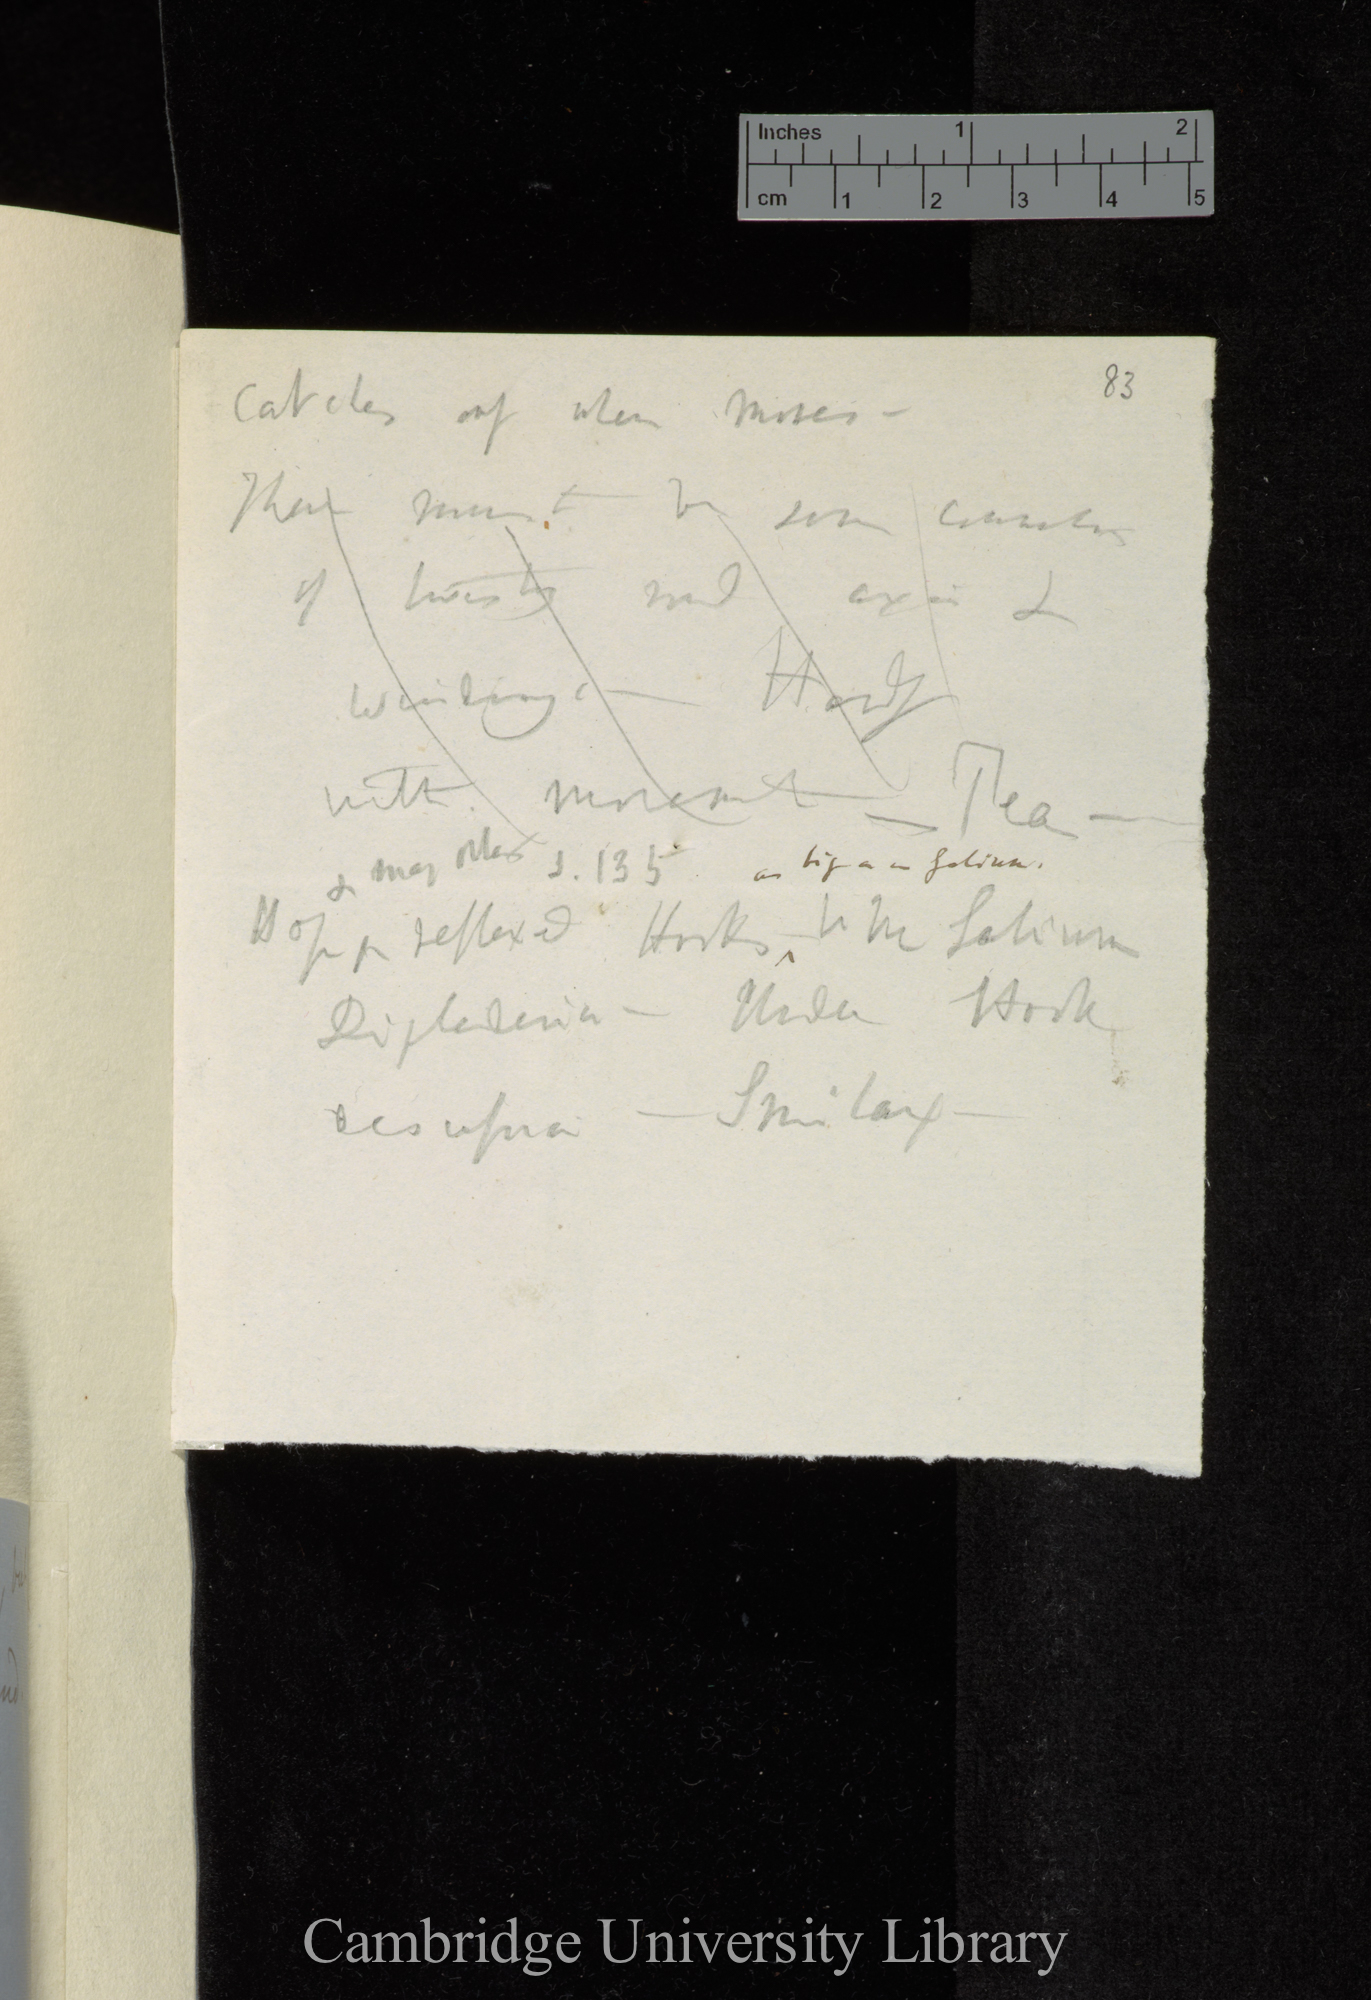 Inches 1 2
cm 1 2 3 4 5
83
Catches out when moves —
There must be some connection
of twisting axis &
winding — Hardly
with movement — Pea —
& may other S. 135 as big as in Galium.
Hop reflexed Hooks, like Galium
Dipladenia — Under Hook
— Smilax —
Cambridge University Library